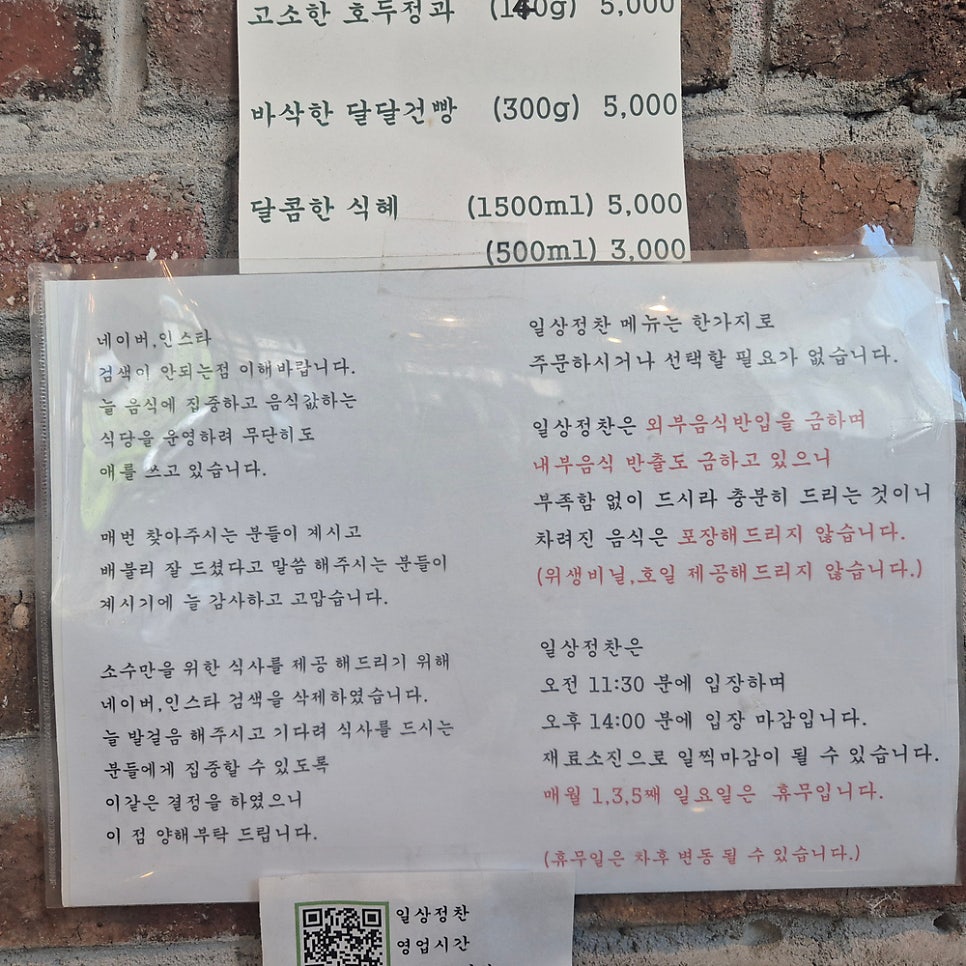 고소한 호두정과 (140g) 5,000
바삭한 달달건빵 (300g) 5,000
달콤한 식혜 (1500ml) 5,000
(500ml) 3,000
네이버,인스타
검색이 안되는점 이해바랍니다.
늘 음식에 집중하고 음식값하는
식당을 운영하려 무단히도
애를 쓰고 있습니다.
매번 찾아주시는 분들이 계시고
배불리 잘 드셨다고 말씀 해주시는 분들이
계시기에 늘 감사하고 고맙습니다.
소수만을 위한 식사를 제공 해드리기 위해
네이버,인스타 검색을 삭제하였습니다.
늘 발걸음 해주시고 기다려 식사를 드시는
분들에게 집중할 수 있도록
이같은 결정을 하였으니
이 점 양해부탁 드립니다.
일상정찬 메뉴는 한가지로
주문하시거나 선택할 필요가 없습니다.
일상정찬은 외부음식반입을 금하며
내부음식 반출도 금하고 있으니
부족함 없이 드시라 충분히 드리는 것이니
차려진 음식은 포장해드리지 않습니다.
(위생비닐,호일 제공해드리지 않습니다.)
일상정찬은
오전 11:30 분에 입장하며
오후 14:00 분에 입장 마감입니다.
재료소진으로 일찍마감이 될 수 있습니다.
매월 1,3,5째 일요일은 휴무입니다.
(휴무일은 차후 변동 될 수 있습니다.)
일상정찬
영업시간